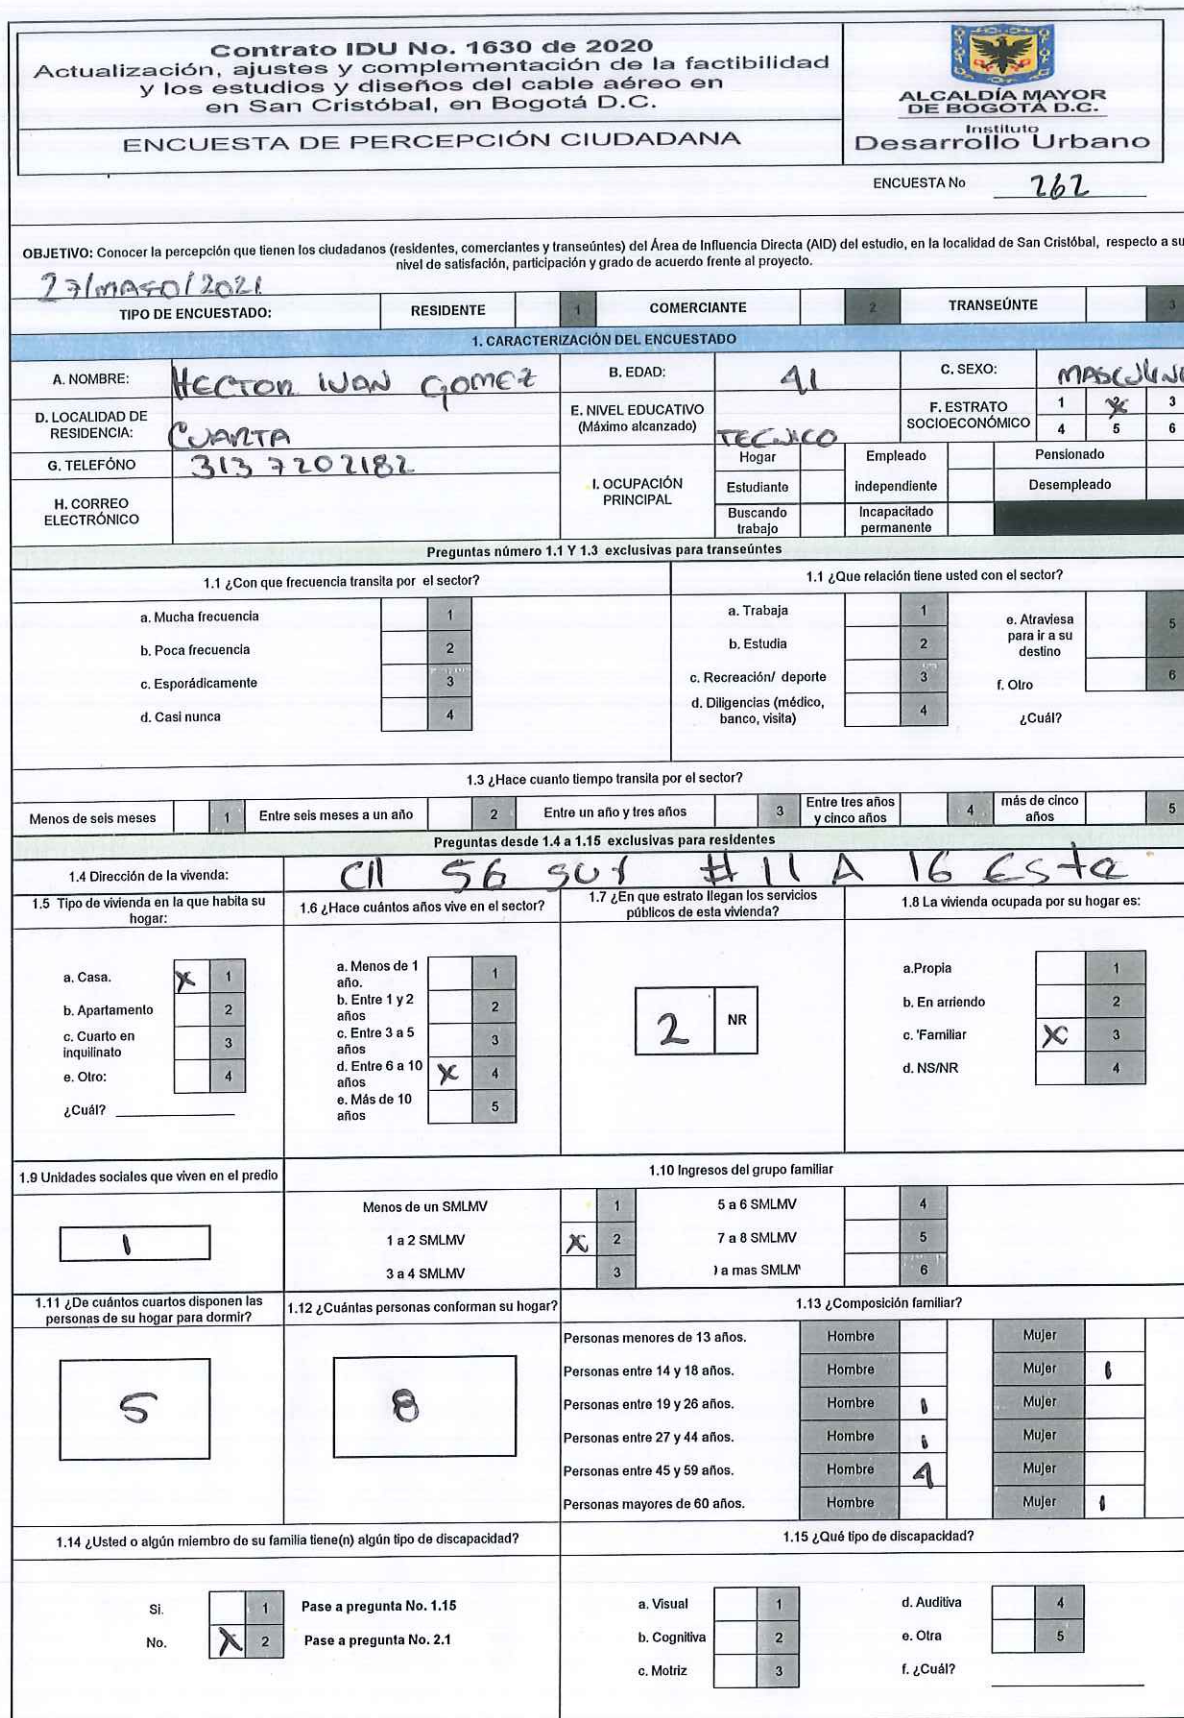 Contrato IDU No. 1630 de 2020
Actualización, ajustes y complementación de la factibilidad
y los estudios y diseños del cable aéreo en
en San Cristóbal, en Bogotá D.C.
ENCUESTA DE PERCEPCIÓN CIUDADANA
ALCALDÍA MAYOR
DE BOGOTÁ D.C.
Instituto
Desarrollo Urbano
ENCUESTA No 262
OBJETIVO: Conocer la percepción que tienen los ciudadanos (residentes, comerciantes y transeúntes) del Área de Influencia Directa (AID) del estudio, en la localidad de San Cristóbal, respecto a su
nivel de satisfacción, participación y grado de acuerdo frente al proyecto.
27/mayo/2021
TIPO DE ENCUESTADO: RESIDENTE 1 COMERCIANTE 2 TRANSEÚNTE 3
1. CARACTERIZACIÓN DEL ENCUESTADO
A. NOMBRE: HECTOR IVAN GOMEZ B. EDAD: 41 C. SEXO: MASCULINO
D. LOCALIDAD DE RESIDENCIA: CUARTA E. NIVEL EDUCATIVO (Máximo alcanzado) TECNICO F. ESTRATO SOCIOECONÓMICO 1 2 3 4 5 6
G. TELEFÓNO 313 7202182
H. CORREO ELECTRÓNICO
I. OCUPACIÓN PRINCIPAL
Hogar Empleado Pensionado
Estudiante independiente Desempleado
Buscando trabajo Incapacitado permanente
Preguntas número 1.1 Y 1.3 exclusivas para transeúntes
1.1 ¿Con que frecuencia transita por el sector?
a. Mucha frecuencia 1
b. Poca frecuencia 2
c. Esporádicamente 3
d. Casi nunca 4
1.1 ¿Que relación tiene usted con el sector?
a. Trabaja 1
b. Estudia 2
c. Recreación/ deporte 3
d. Diligencias (médico, banco, visita) 4
e. Atraviesa para ir a su destino 5
f. Otro 6
¿Cuál?
1.3 ¿Hace cuanto tiempo transita por el sector?
Menos de seis meses 1 Entre seis meses a un año 2 Entre un año y tres años 3 Entre tres años y cinco años 4 más de cinco años 5
Preguntas desde 1.4 a 1.15 exclusivas para residentes
1.4 Dirección de la vivenda: Cll 56 sur # 11 A 16 Este
1.5 Tipo de vivienda en la que habita su hogar:
a. Casa. X 1
b. Apartamento 2
c. Cuarto en inquilinato 3
e. Otro: 4
¿Cuál?
1.6 ¿Hace cuántos años vive en el sector?
a. Menos de 1 año. 1
b. Entre 1 y 2 años 2
c. Entre 3 a 5 años 3
d. Entre 6 a 10 años X 4
e. Más de 10 años 5
1.7 ¿En que estrato llegan los servicios públicos de esta vivienda?
2 NR
1.8 La vivienda ocupada por su hogar es:
a.Propia 1
b. En arriendo 2
c. 'Familiar X 3
d. NS/NR 4
1.9 Unidades sociales que viven en el predio
1
1.10 Ingresos del grupo familiar
Menos de un SMLMV 1 5 a 6 SMLMV 4
1 a 2 SMLMV X 2 7 a 8 SMLMV 5
3 a 4 SMLMV 3 a mas SMLM 6
1.11 ¿De cuántos cuartos disponen las personas de su hogar para dormir?
5
1.12 ¿Cuántas personas conforman su hogar?
8
1.13 ¿Composición familiar?
Personas menores de 13 años. Hombre Mujer
Personas entre 14 y 18 años. Hombre Mujer 1
Personas entre 19 y 26 años. Hombre 1 Mujer
Personas entre 27 y 44 años. Hombre 1 Mujer
Personas entre 45 y 59 años. Hombre 4 Mujer
Personas mayores de 60 años. Hombre Mujer 1
1.14 ¿Usted o algún miembro de su familia tiene(n) algún tipo de discapacidad?
Si. 1 Pase a pregunta No. 1.15
No. X 2 Pase a pregunta No. 2.1
1.15 ¿Qué tipo de discapacidad?
a. Visual 1 d. Auditiva 4
b. Cognitiva 2 e. Otra 5
c. Motriz 3 f. ¿Cuál?